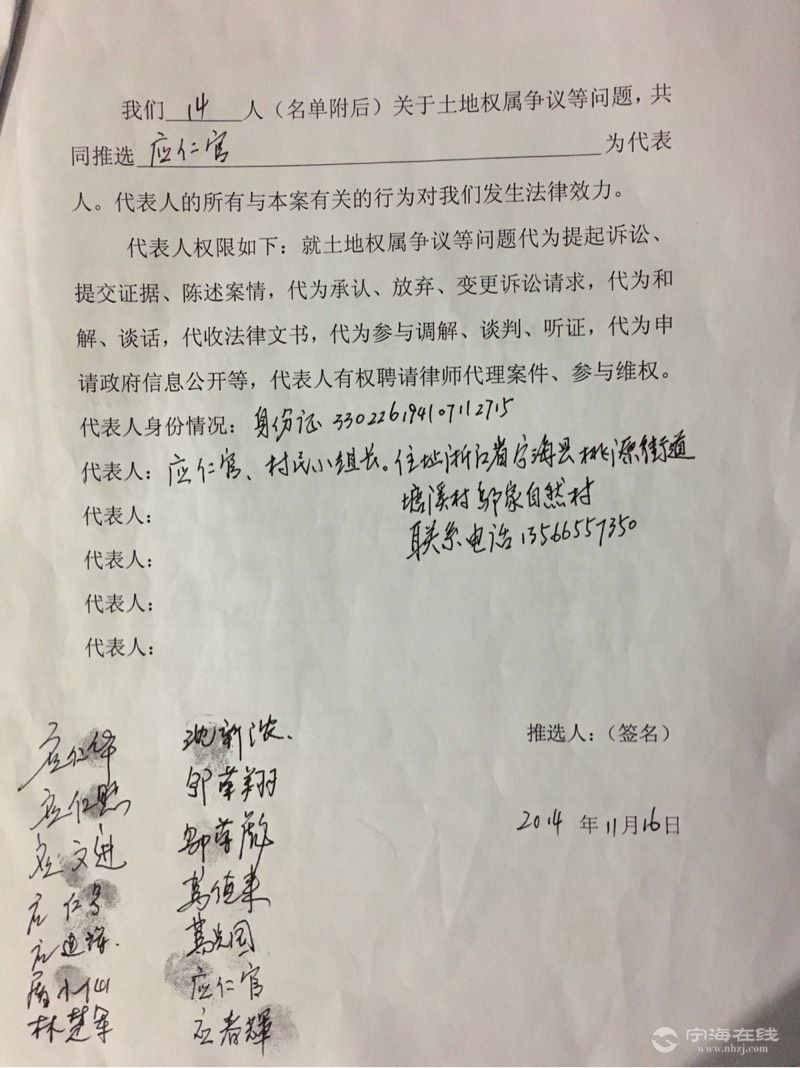 我们 14 人（名单附后）关于土地权属争议等问题，共
同推选 应仁官 为代表
人。代表人的所有与本案有关的行为对我们发生法律效力。
代表人权限如下：就土地权属争议等问题代为提起诉讼、
提交证据、陈述案情，代为承认、放弃、变更诉讼请求，代为和
解、谈话，代收法律文书，代为参与调解、谈判、听证，代为申
请政府信息公开等，代表人有权聘请律师代理案件、参与维权。
代表人身份情况：身份证 330226194107112715
代表人：应仁官、村民小组长。住址浙江省宁海县桃源街道
代表人：塘溪村邬家自然村
联系电话13566557350
代表人：
代表人：
代表人：
推选人：（签名）
2014 年 11月16日
应仁华
应仁熙
应文进
应仁
应
小仙
林楚军
沈新浓、
邬荣翔
邬荣彪
葛值来
葛光国
应仁官
应春輝
宁海在线
www.nhzj.com